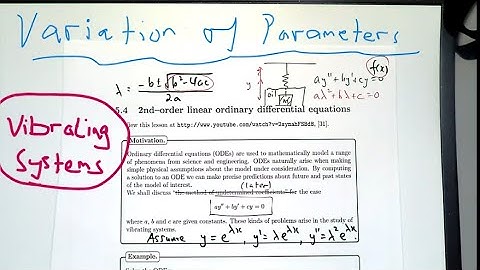 Variation of Parameters
λ = -b ± √b² - 4ac / 2a
y
oil
M
f(x)
ay'' + by' + cy = 0
aλ² + bλ + c = 0
5.4 2nd–order linear ordinary differential equations
Vibrating
Systems
View this lesson at
Motivation.
Ordinary differential equations (ODEs) are used to mathematically model a range
of phenomena from science and engineering. ODEs naturally arise when making
simple physical assumptions about the model under consideration. By computing
a solution to an ODE we can make precise predictions about future and past states
of the model of interest.
(later)
We shall discuss "the method of undetermined coefficients" for the case
ay'' + by' + cy = 0
where a, b and c are given constants. These kinds of problems arise in the study of
vibrating systems.
Assume y = e^λx, y' = λe^λx, y'' = λ²e^λx.
Example.